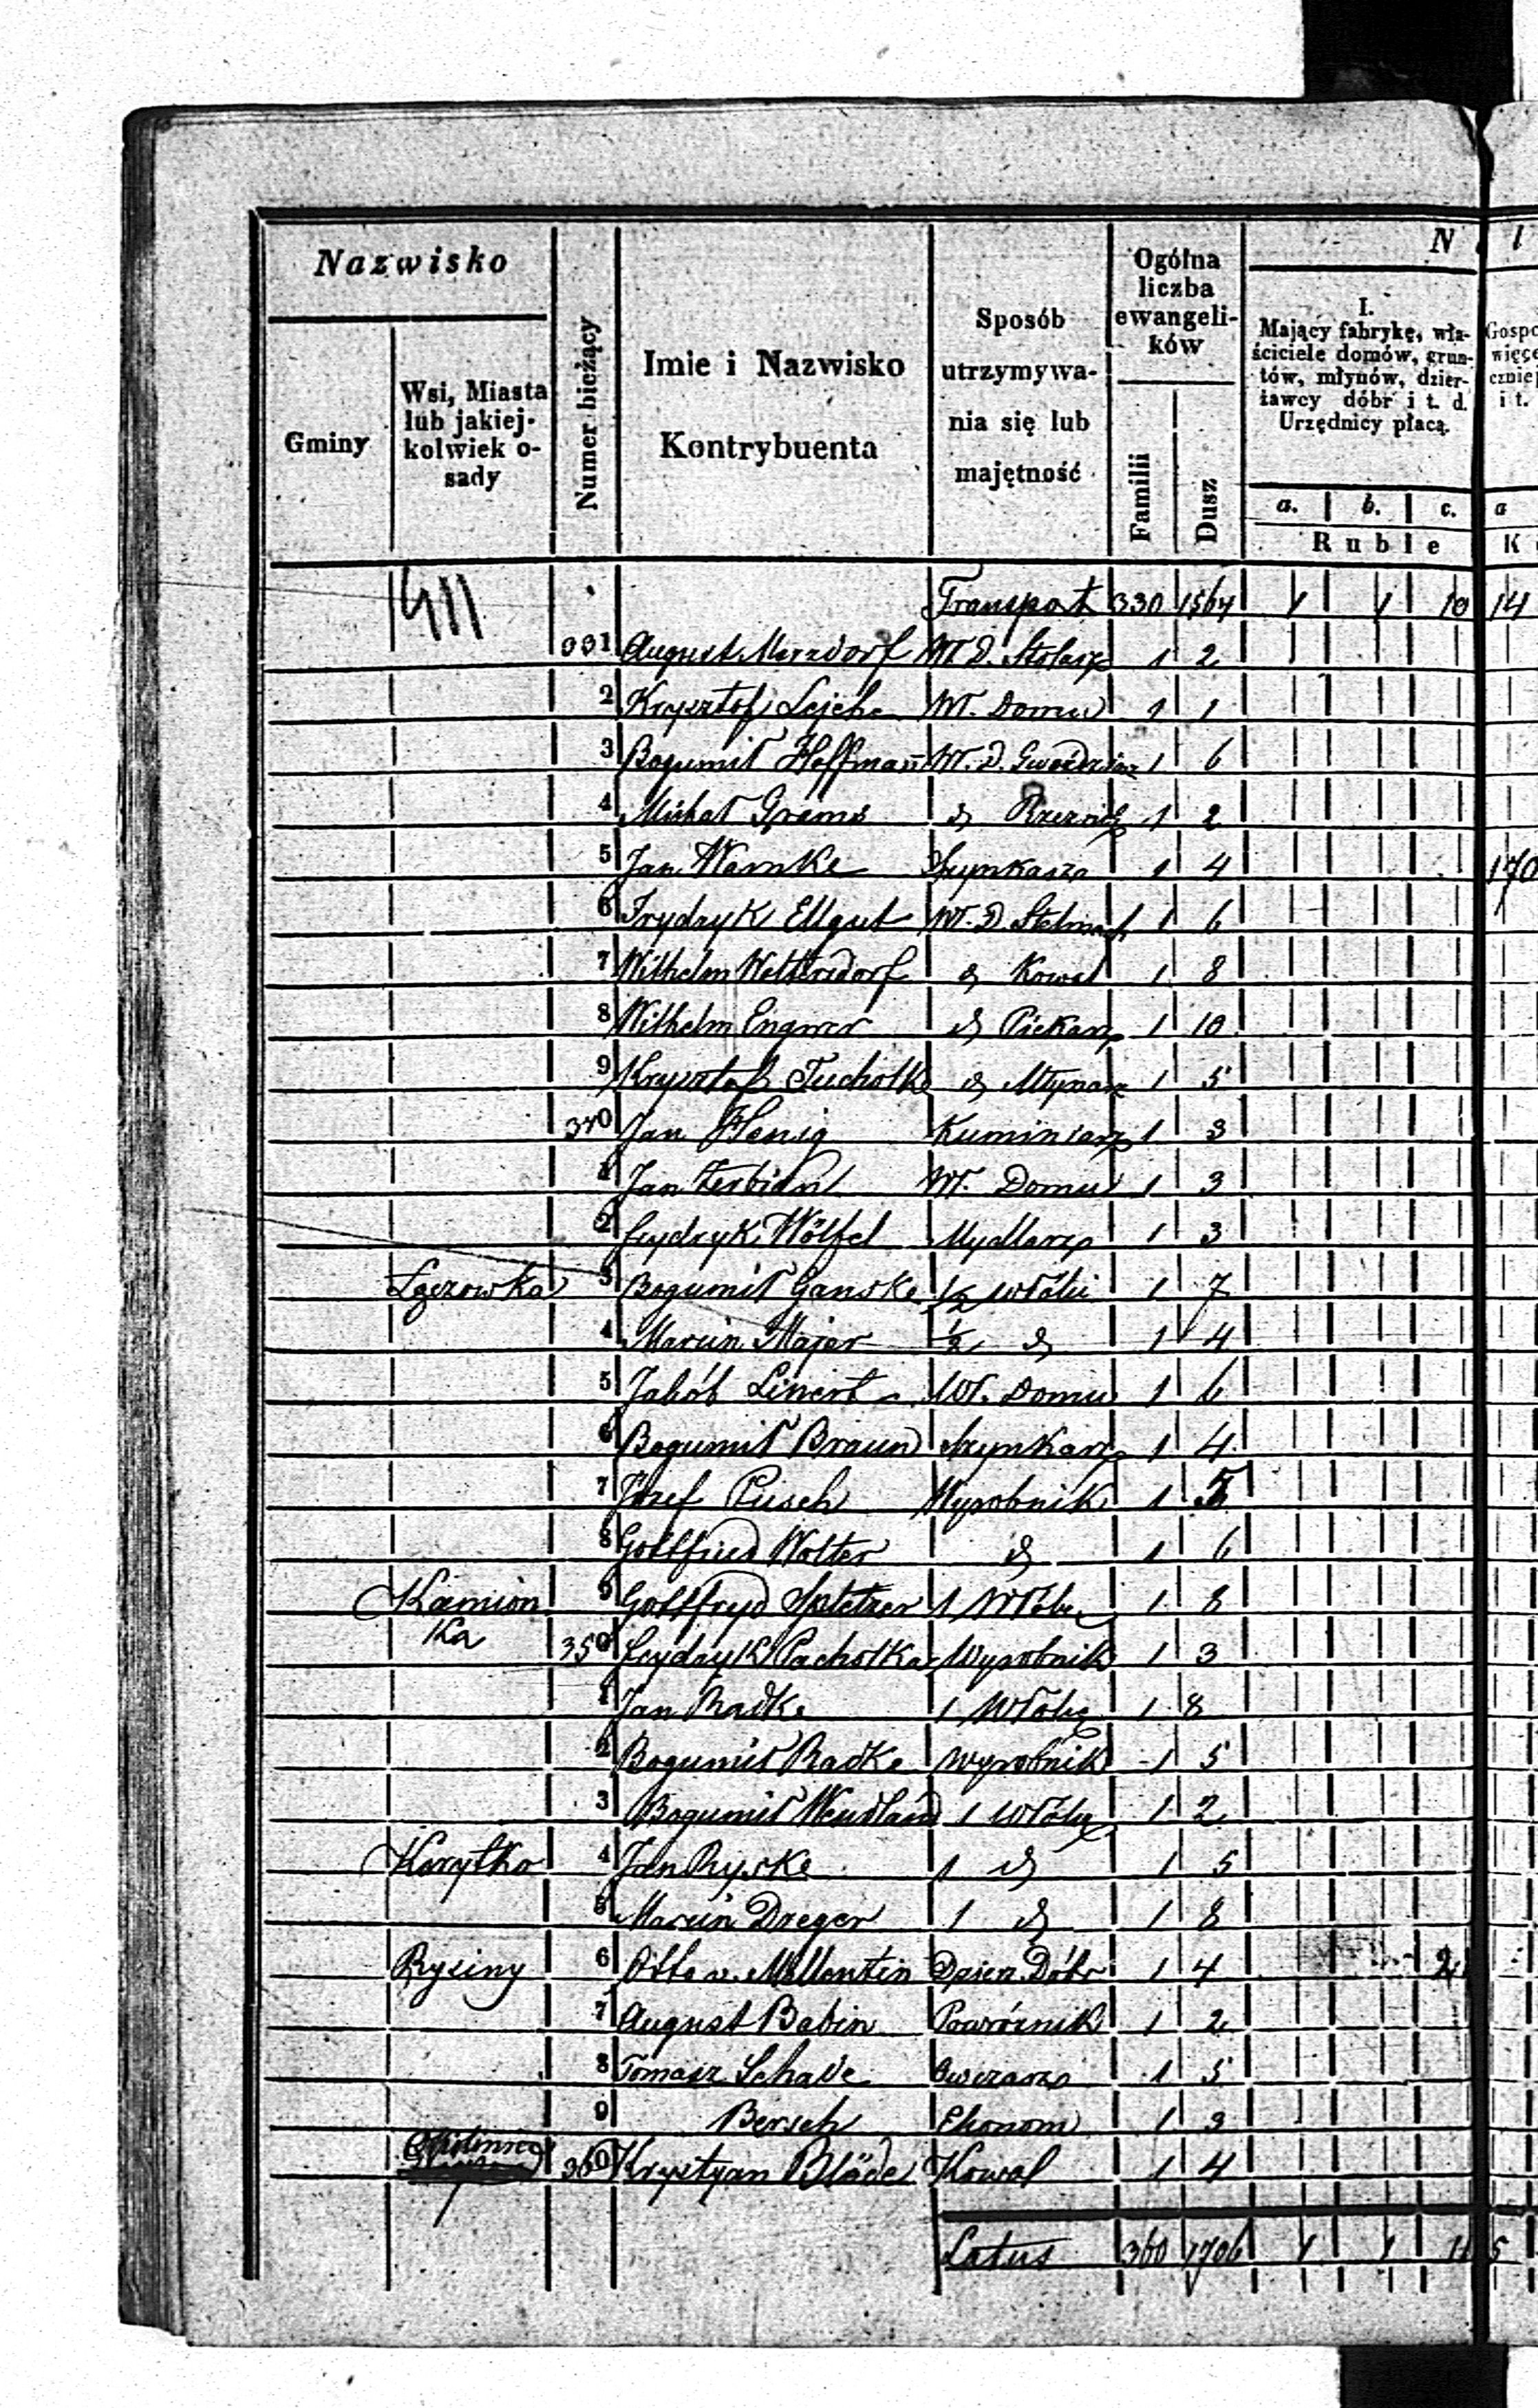 Nazwisko
Gminy
Wsi, Miasta
lub jakiej-
kolwiek o-
sady
Numer bieżący
Imie i Nazwisko
Kontrybuenta
Sposób
utrzymywa-
nia się lub
majętność
Ogólna
liczba
ewangeli-
ków
Familii
Dusz
N
I.
Mający fabrykę, wła-
ściciele domów, grun-
tów, młynów, dzier-
żawcy dóbr i t. d.
Urzędnicy płacą.
a. b. c.
Ruble
l
Gospo
więce
cznie
i t.
a
K
Transport 330 1564 1 1 10 14
331 August Merzdorf Wł. D. Stolarz 1 2
2 Krysztof Lejche Wł. Domu 1 1
3 Bogumił Hoffmann Wł. D. Gwoździarz 1 6
4 Michał Grams d Rzeznik 1 2
5 Jan Warnke Szynkarz 1 4 170
6 Frydryk Ellgut Wł. D Stelmach 1 6
7 Wilhelm Weltersdorf d Kowal 1 8
8 Wilhelm Engwer d Piekarz 1 10
9 Krysztof Tucholke d Młynarz 1 5
340 Jan Henig Kuminiarz 1 3
1 Jan Zerbian Wł. Domu 1 3
2 Frydryk Wölfel Mydlarz 1 3
Łęczowka 3 Bogumił Ganske 1/2 włóki 1 7
4 Marcin Majer 1/2 d 1 4
5 Jakób Linert Wł. Domu 1 6
6 Bogumił Braun Szynkarz 1 4
7 Józef Piesch Wyrobnik 1 5
8 Gottfried Wolter d 1 6
Kamion 9 Gottfryd Spletzer 1 Włoka 1 8
ka 350 Frydryk Pacholka Wyrobnik 1 3
1 Jan Radke 1 Włokę 1 8
2 Bogumił Radke Wyrobnik 1 5
3 Bogumił Wendland 1 włókę 1 2
Korytko 4 Jan Ryske 1 d 1 5
5 Marcin Dreger 1 d 1 8
Rysiny 6 Otto v. Mellentin Dzier. Dóbr 1 4 2
7 August Babin Powróźnik 1 2
8 Tomasz Schade Owczarz 1 5
9 Bersch Ekonom 1 3
360 Krystyan Bläde Kowal 1 4
Latus 360 1706 1 1 11 5